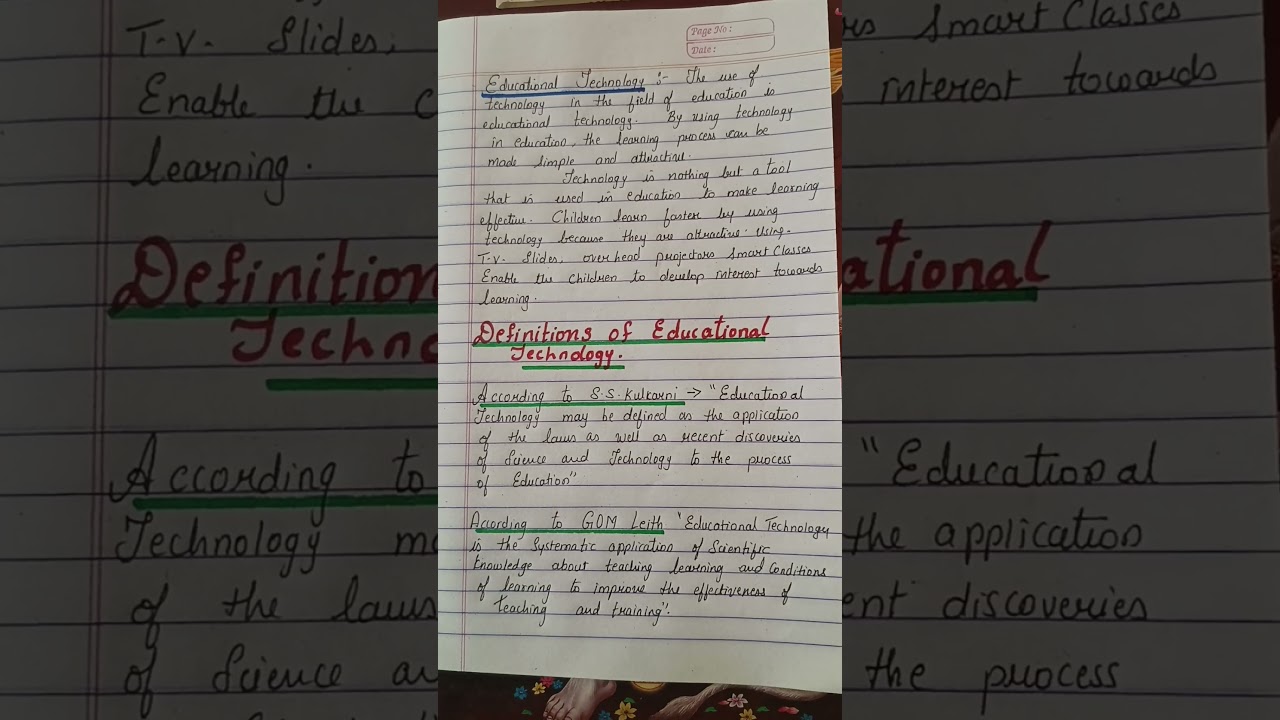 Page No :
Date :
Educational Technology :- The use of
technology in the field of education is
educational technology. By using technology
in education, the learning process can be
made simple and attractive.
Technology is nothing but a tool
that is used in education to make learning
effective. Children learn faster by using
technology because they are attractive. Using-
T.V. Slides, overhead projectors Smart Classes
Enable the Children to develop interest towards
learning.
Definitions of Educational
Technology.
According to S.S. Kulkarni → "Educational
Technology may be defined as the application
of the laws as well as recent discoveries
of Science and Technology to the process
of Education"
According to GOM Leith "Educational Technology
is the Systematic application of Scientific
knowledge about teaching learning and Conditions
of learning to improve the effectiveness of
teaching and training".